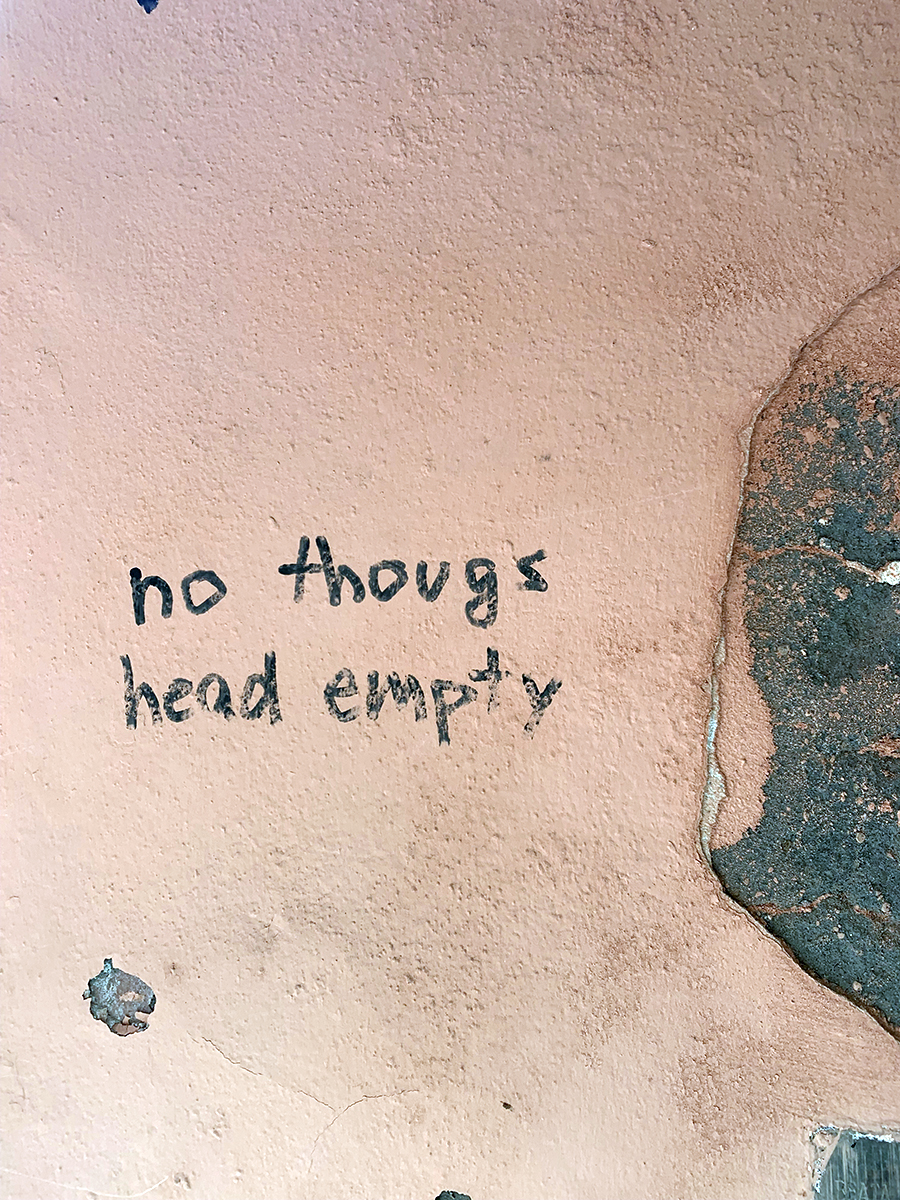 no thougs
head empty